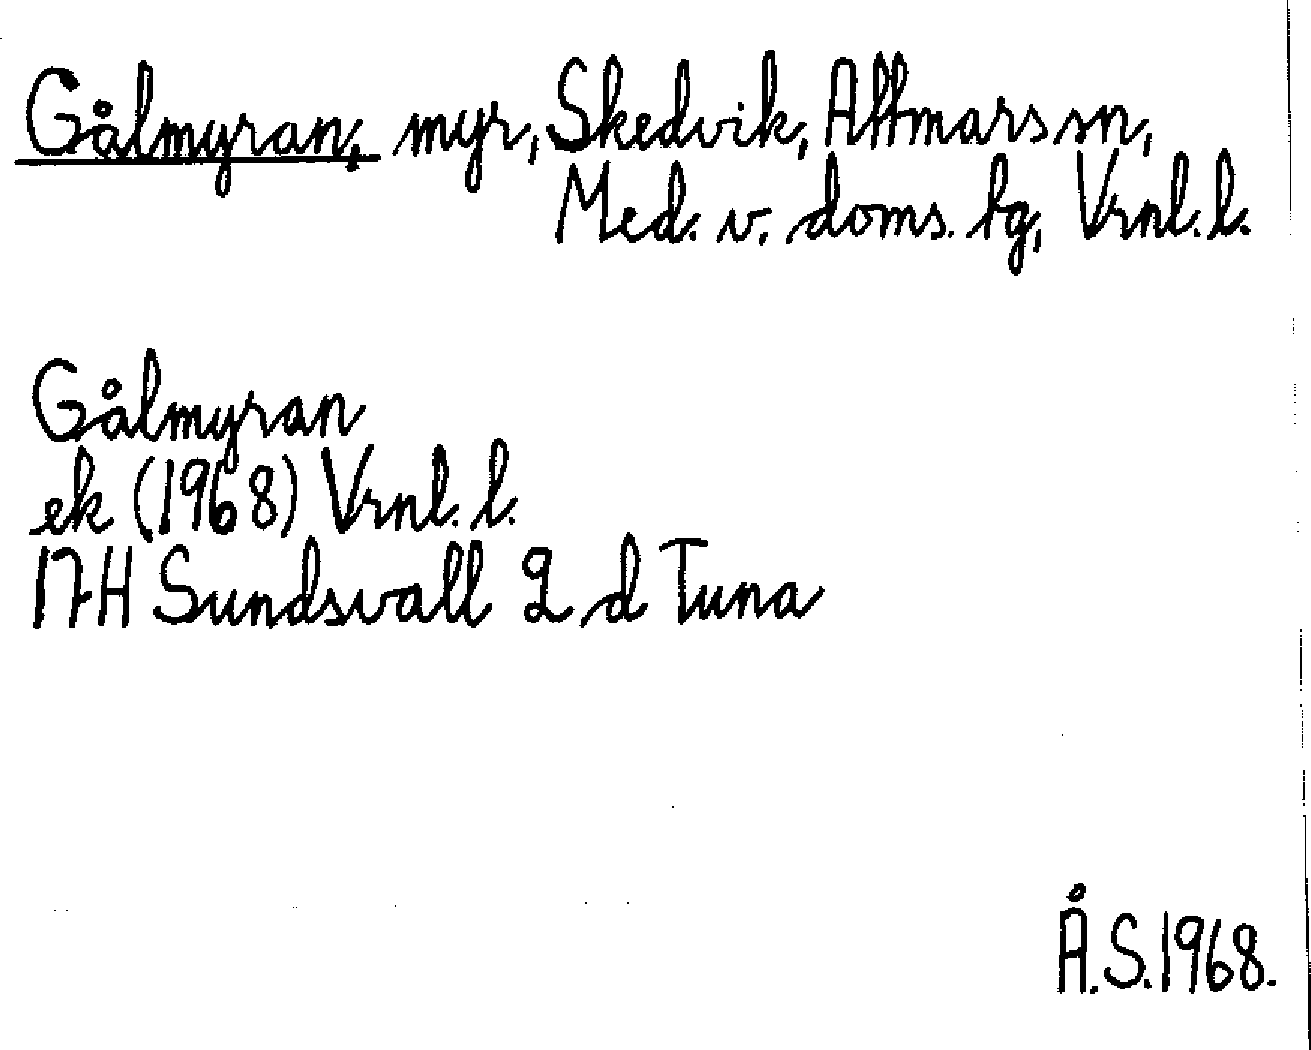 Gålmyran, myr, Skedvik, Attmars sn,
Med. v. doms. tg, Vrnl. l.
Gålmyran
ek (1968) Vrnl. l.
17H Sundsvall 2 d Tuna
Å.S. 1968.